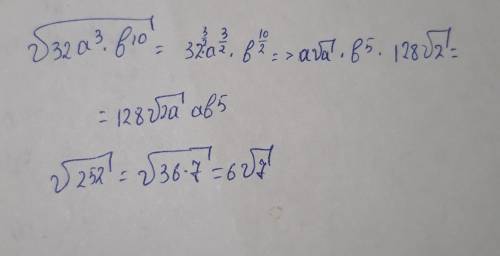 √32a³·b¹⁰ = 32^(3/2) a^(3/2) · b^(10/2) => a√a · b⁵ · 128√2 =
= 128√2a ab⁵
√252 = √36·7 = 6√7